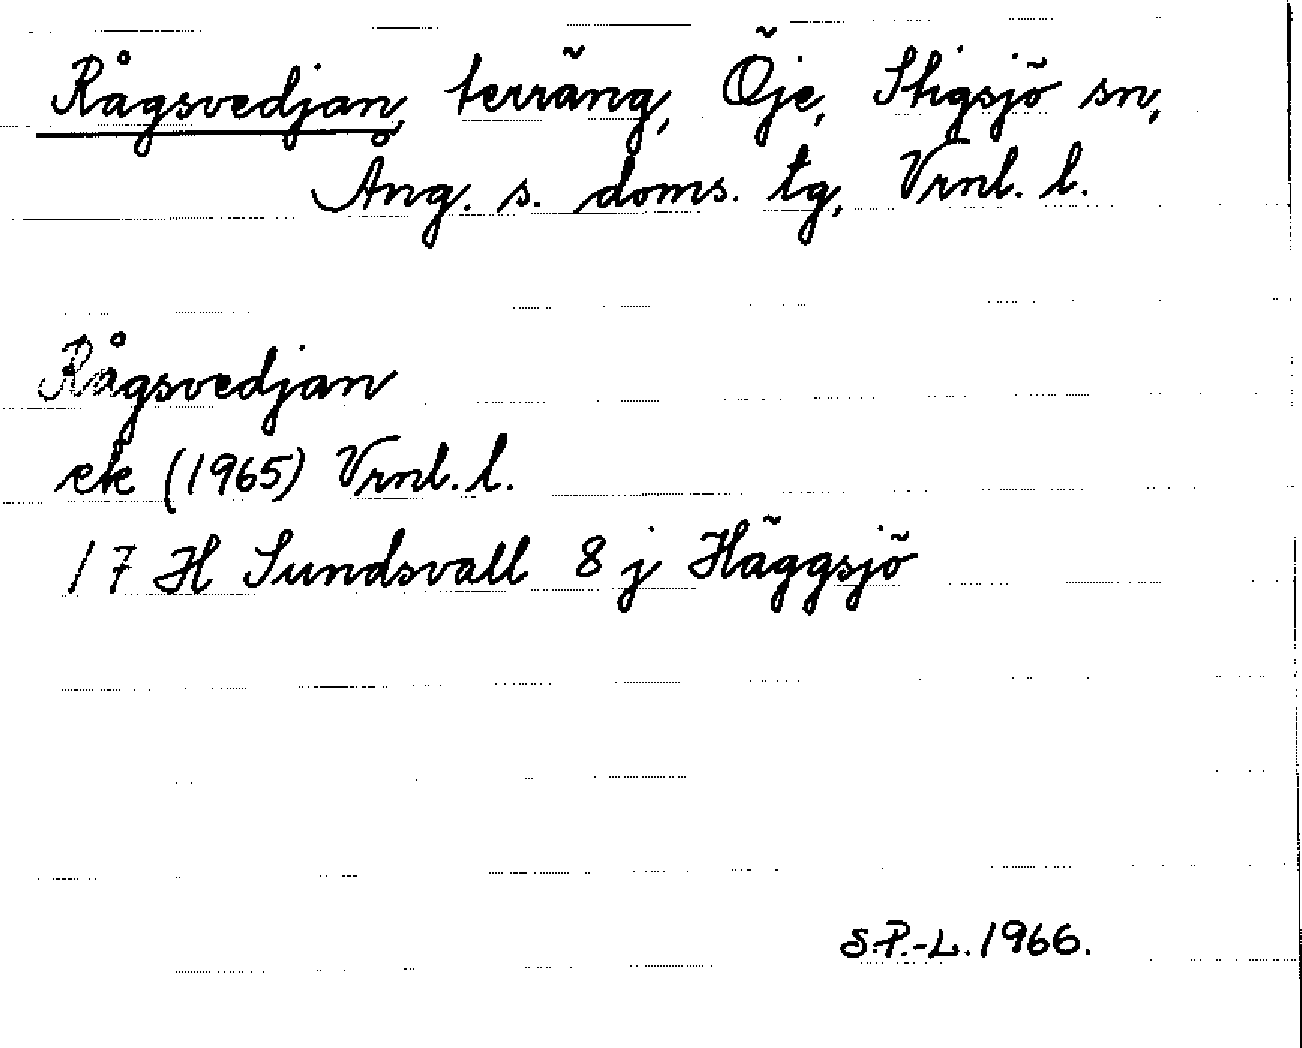 Rågsvedjan, terräng, Öje, Stigsjö sn,
Ång. s. doms. tg, Vrnl. l.
Rågsvedjan
ek (1965) Vrnl. l.
17 H Sundsvall 8 j Häggsjö
S.P.-L. 1966.